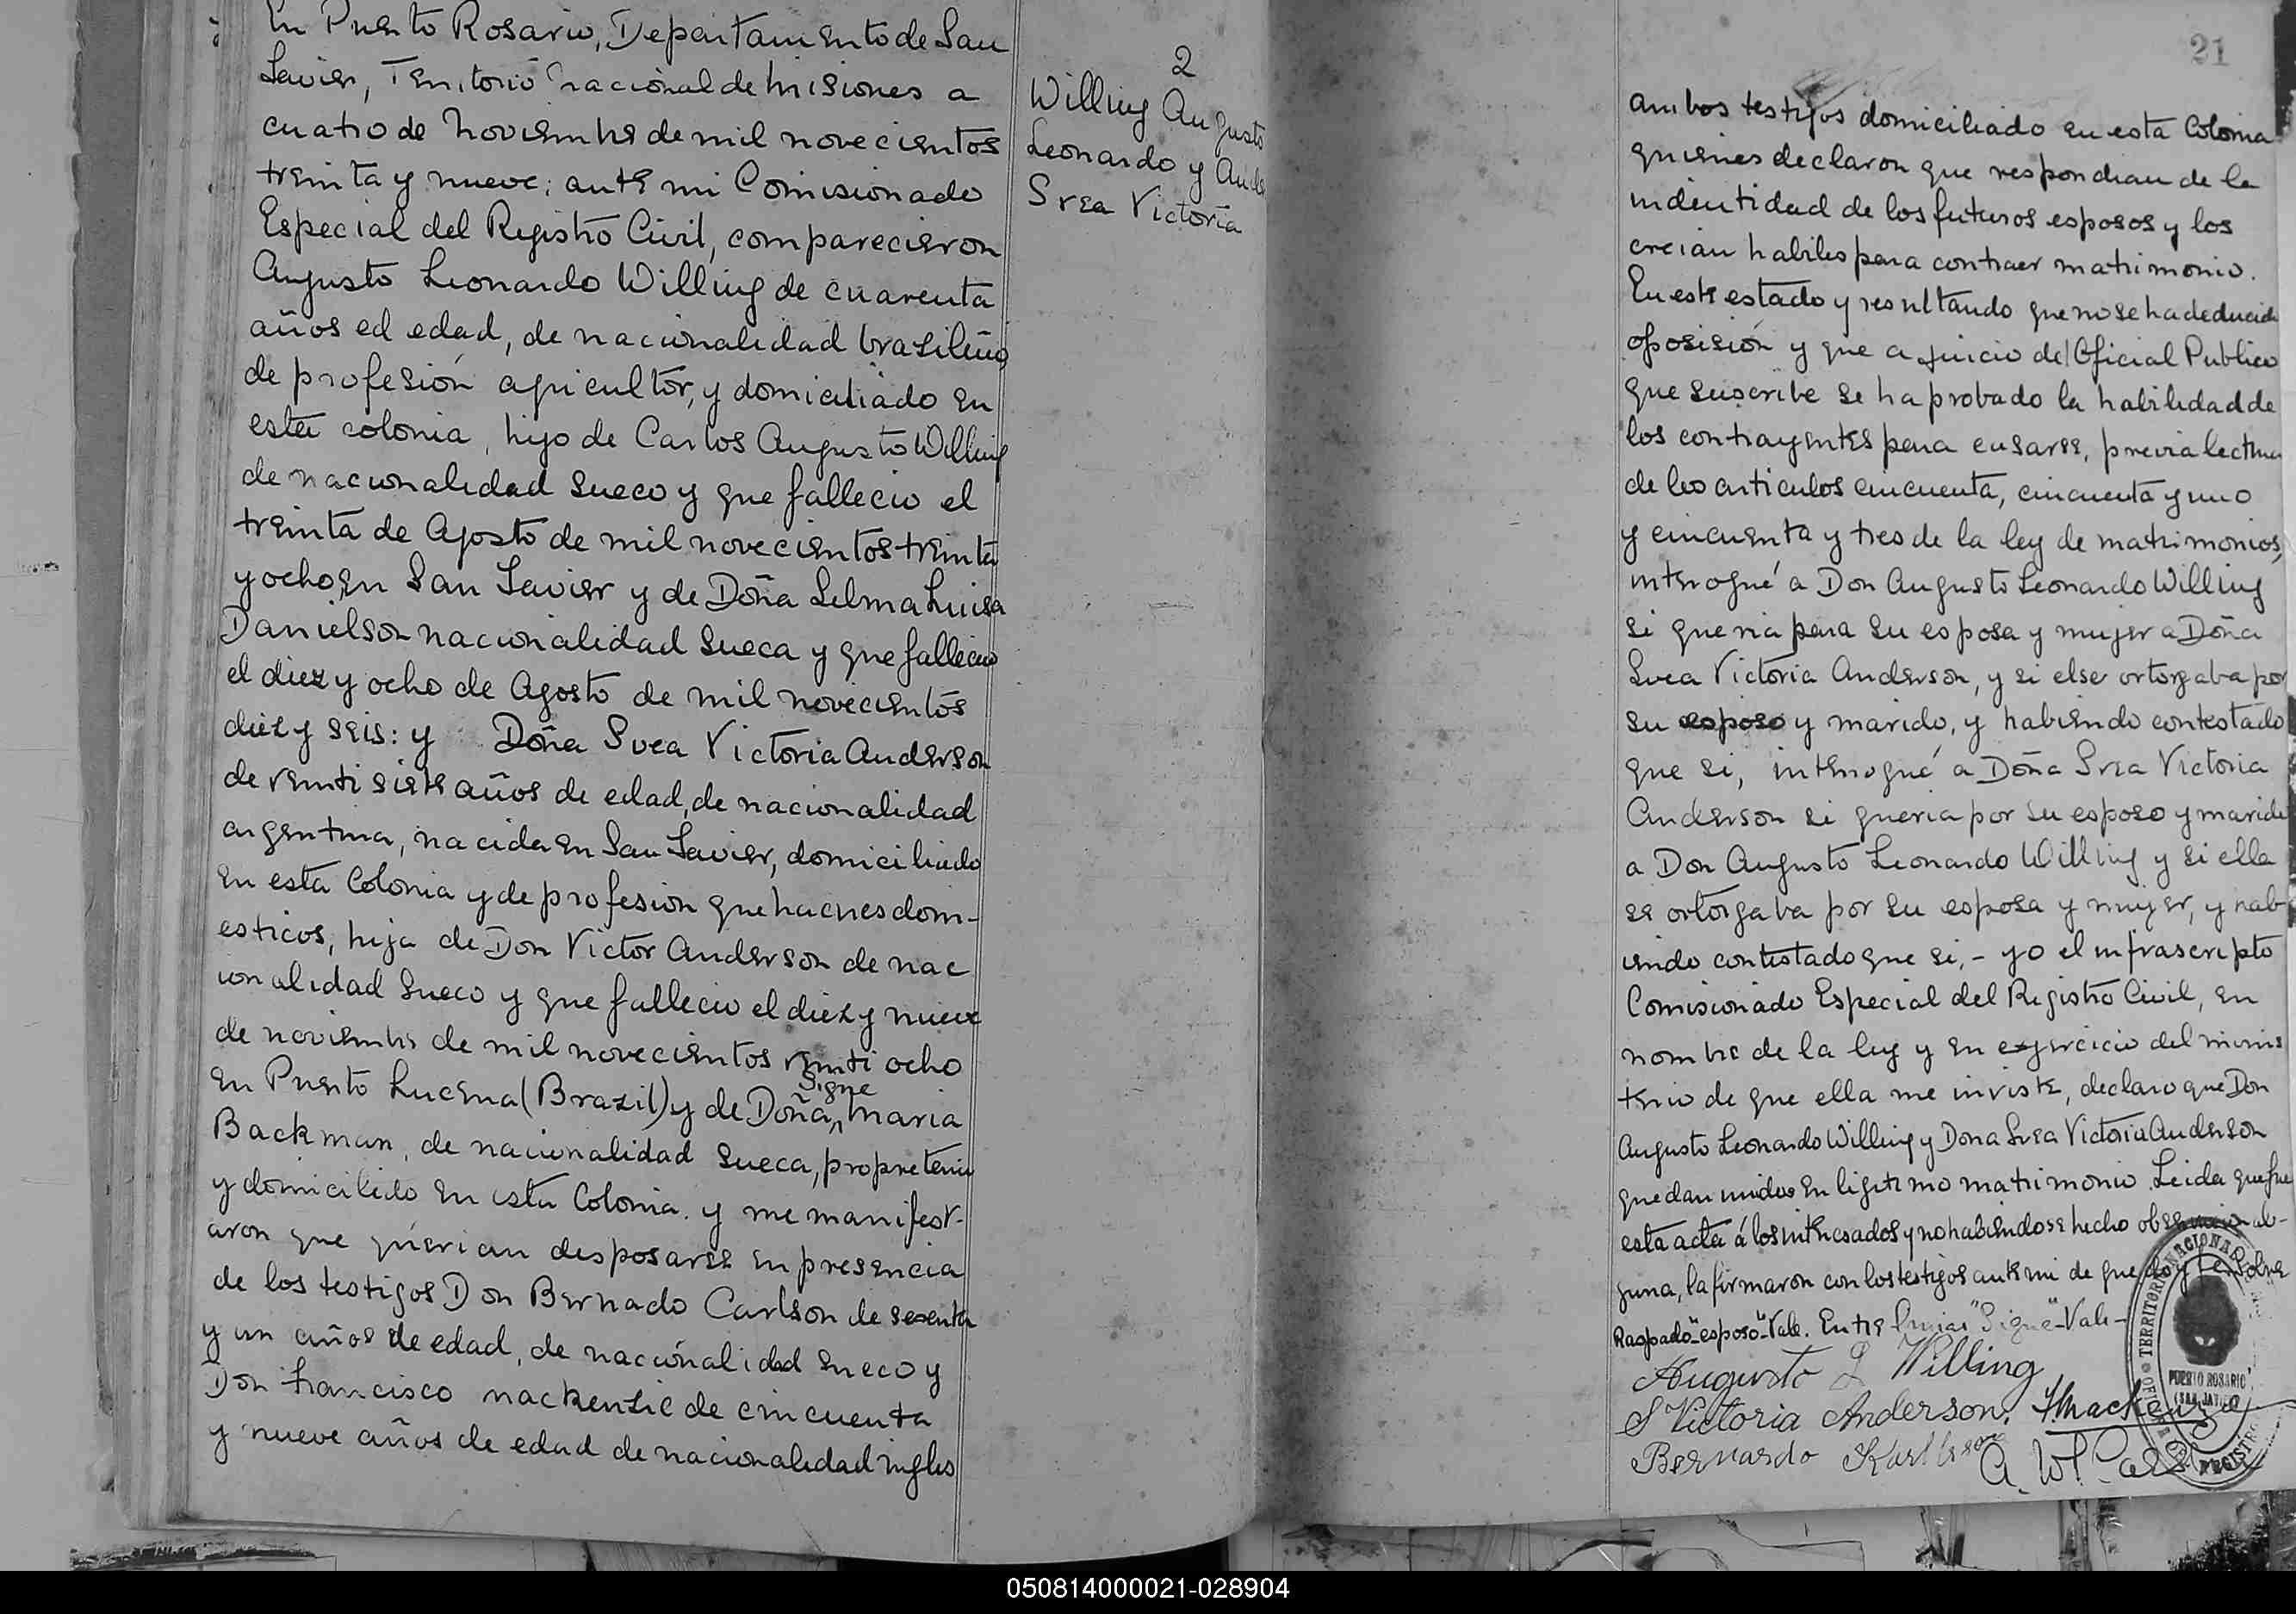 En Puerto Rosario, Departamento de San
Javier, Territorio nacional de Misiones a
cuatro de noviembre de mil novecientos
treinta y nueve; ante mi Comisionado
Especial del Registro Civil, comparecieron
Augusto Leonardo Willing de cuarenta
años ed edad, de nacionalidad brazileño
de profesión agricultor, y domiciliado en
esta colonia, hijo de Carlos Augusto Willing
de nacionalidad sueco y que fallecio el
treinta de Agosto de mil novecientos treinta
y ocho, en San Javier y de Doña Selma Luisa
Danielson nacionalidad sueca y que fallecio
el diez y ocho de Agosto de mil novecientos
diez y seis: y Doña Svea Victoria Anderson
de venti siete años de edad, de nacionalidad
argentina, nacida en San Javier, domiciliado
en esta Colonia y de profesion quehacresdom-
esticos, hija de Don Victor Anderson de nac
ionalidad sueco y que fallecio el diez y nueve
de noviembre de mil novecientos venti ocho
Signe
en Puerto Lucena (Brazil) y de Doña, Maria
Backman, de nacionalidad sueca, propretario
y domiciliado en esta Colonia. y me manifest-
aron que querian desposarse en presencia
de los testigos Don Bernado Carlson de sesenta
y un años de edad, de nacionalidad sueco y
Don Francisco Mackenzie de cincuenta
y nueve años de edad de nacionalidad ingles
2
Willing Augusto
Leonardo y Ande
Svea Victoria
21
ambos testigos domiciliado en esta Colonia
quienes declaron que respondian de la
indentidad de los futuros esposos y los
creian habiles para contraer matrimonio.
En este estado y resultando que no se ha deducido
oposisión y que a juicio del Oficial Publico
que suscribe se ha probado la habilidad de
los contrayentes para casarse, previa lectura
de los articulos cincuenta, cincuenta y uno
y cincuenta y tres de la ley de matrimonios,
interogué a Don Augusto Leonardo Willing
si queria para su esposa y mujer a Doña
Svea Victoria Anderson, y si el se ortorgaba por
su esposo y marido, y habiendo contestado
que si, interrogué a Doña Svea Victoria
Anderson si queria por su esposo y marido
a Don Augusto Leonardo Willing y si ella
se ortorgaba por su esposa y mujer, y hab
iendo contestado que si, - yo el infrascripto
Comisionado Especial del Registro Civil, en
nombre de la ley y en exjercicio del minis
terio de que ella me inviste, declaro que Don
Augusto Leonardo Willing y Dona Svea Victoria Anderson
quedan unidos en ligitimo matrimonio. Leida que fue
esta acta á los intresados y no habiendose hecho observacion al-
guna, la firmaron con los testigos ante mi de que doy fe. Sobre
Raspado "esposo" Vale. Entre lineas "Signe" Vale-
Augusto L Willing
S Victoria Anderson. FMackenzie
Bernardo Karlsson A. W.
TERRITORIO NACIONAL
PUERTO ROSARIO
(SAN JAVIER)
050814000021-028904